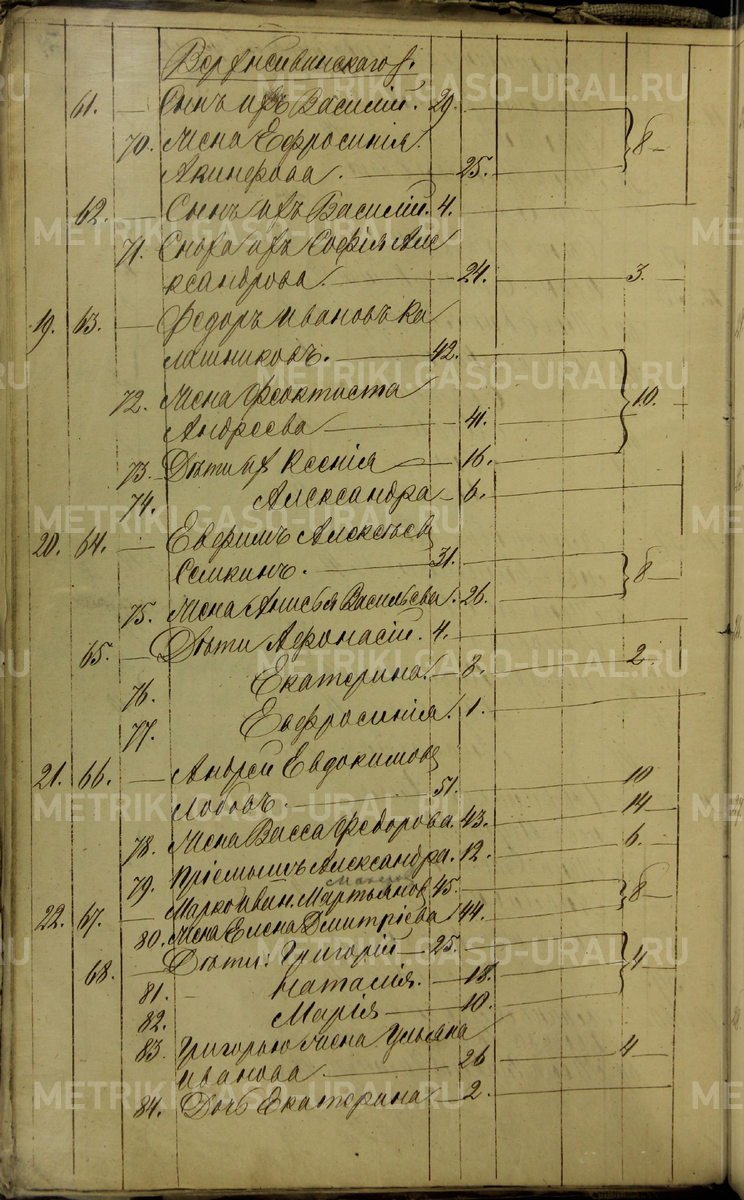 61. — Сынъ ихъ Василій. 29.
70. Жена Ефросинія
Акинфова. — 25. 8
62. — Сынъ ихъ Василій. 4.
71. Сноха ихъ Софія Але
ксандрова. — 24. 3.
19. 63. — Федоръ Ивановъ Ка
лашниковъ. — 42.
72. Жена Феоктиста 10.
Андреева — 41.
73. Дѣти ихъ Ксенія — 16.
74. Александра — 6.
20. 64. — Евфимъ Алексѣевъ
Семкинъ. — 31. 8
75. Жена Анисья Васильева. 26.
65. — Дѣти Афонасій. 4.
76. Екатерина. — 8. 2.
77. Евфросинія. 1.
21. 66. — Андрей Евдокимовъ
Лобовъ. — 51. 10
78. Жена Васса Федорова. 43. 14
79. Пріемышъ Александра. 12. 6.
22. 67. — Марко Иван. Мартьянов 45.
80. Жена Елена Дмитріева 44. 8
68. — Дѣти: Григорій — 25.
81. — Наталія. — 18. 4
82. Марія — 10.
83. Григорью жена Ульяна
Иванова. — 26 4
84. Дочь Екатерина — 2.
METRIKI.GASO-URAL.RU